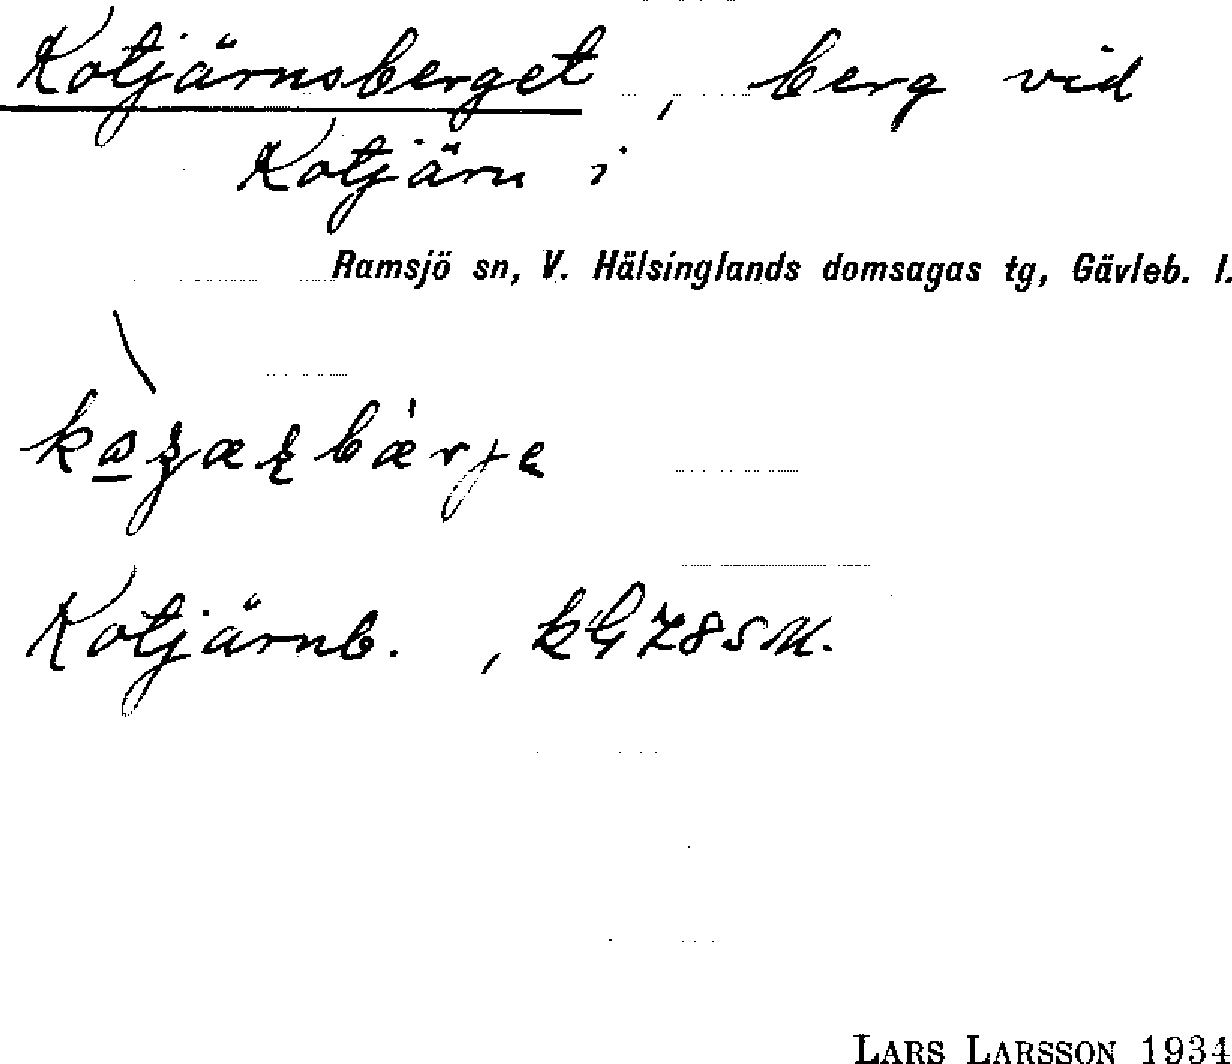 Kotjärnsberget, berg vid
Kotjärn i
Ramsjö sn, V. Hälsinglands domsagas tg, Gävleb. l.
Kotjärnb. ,
LARS LARSSON 1934